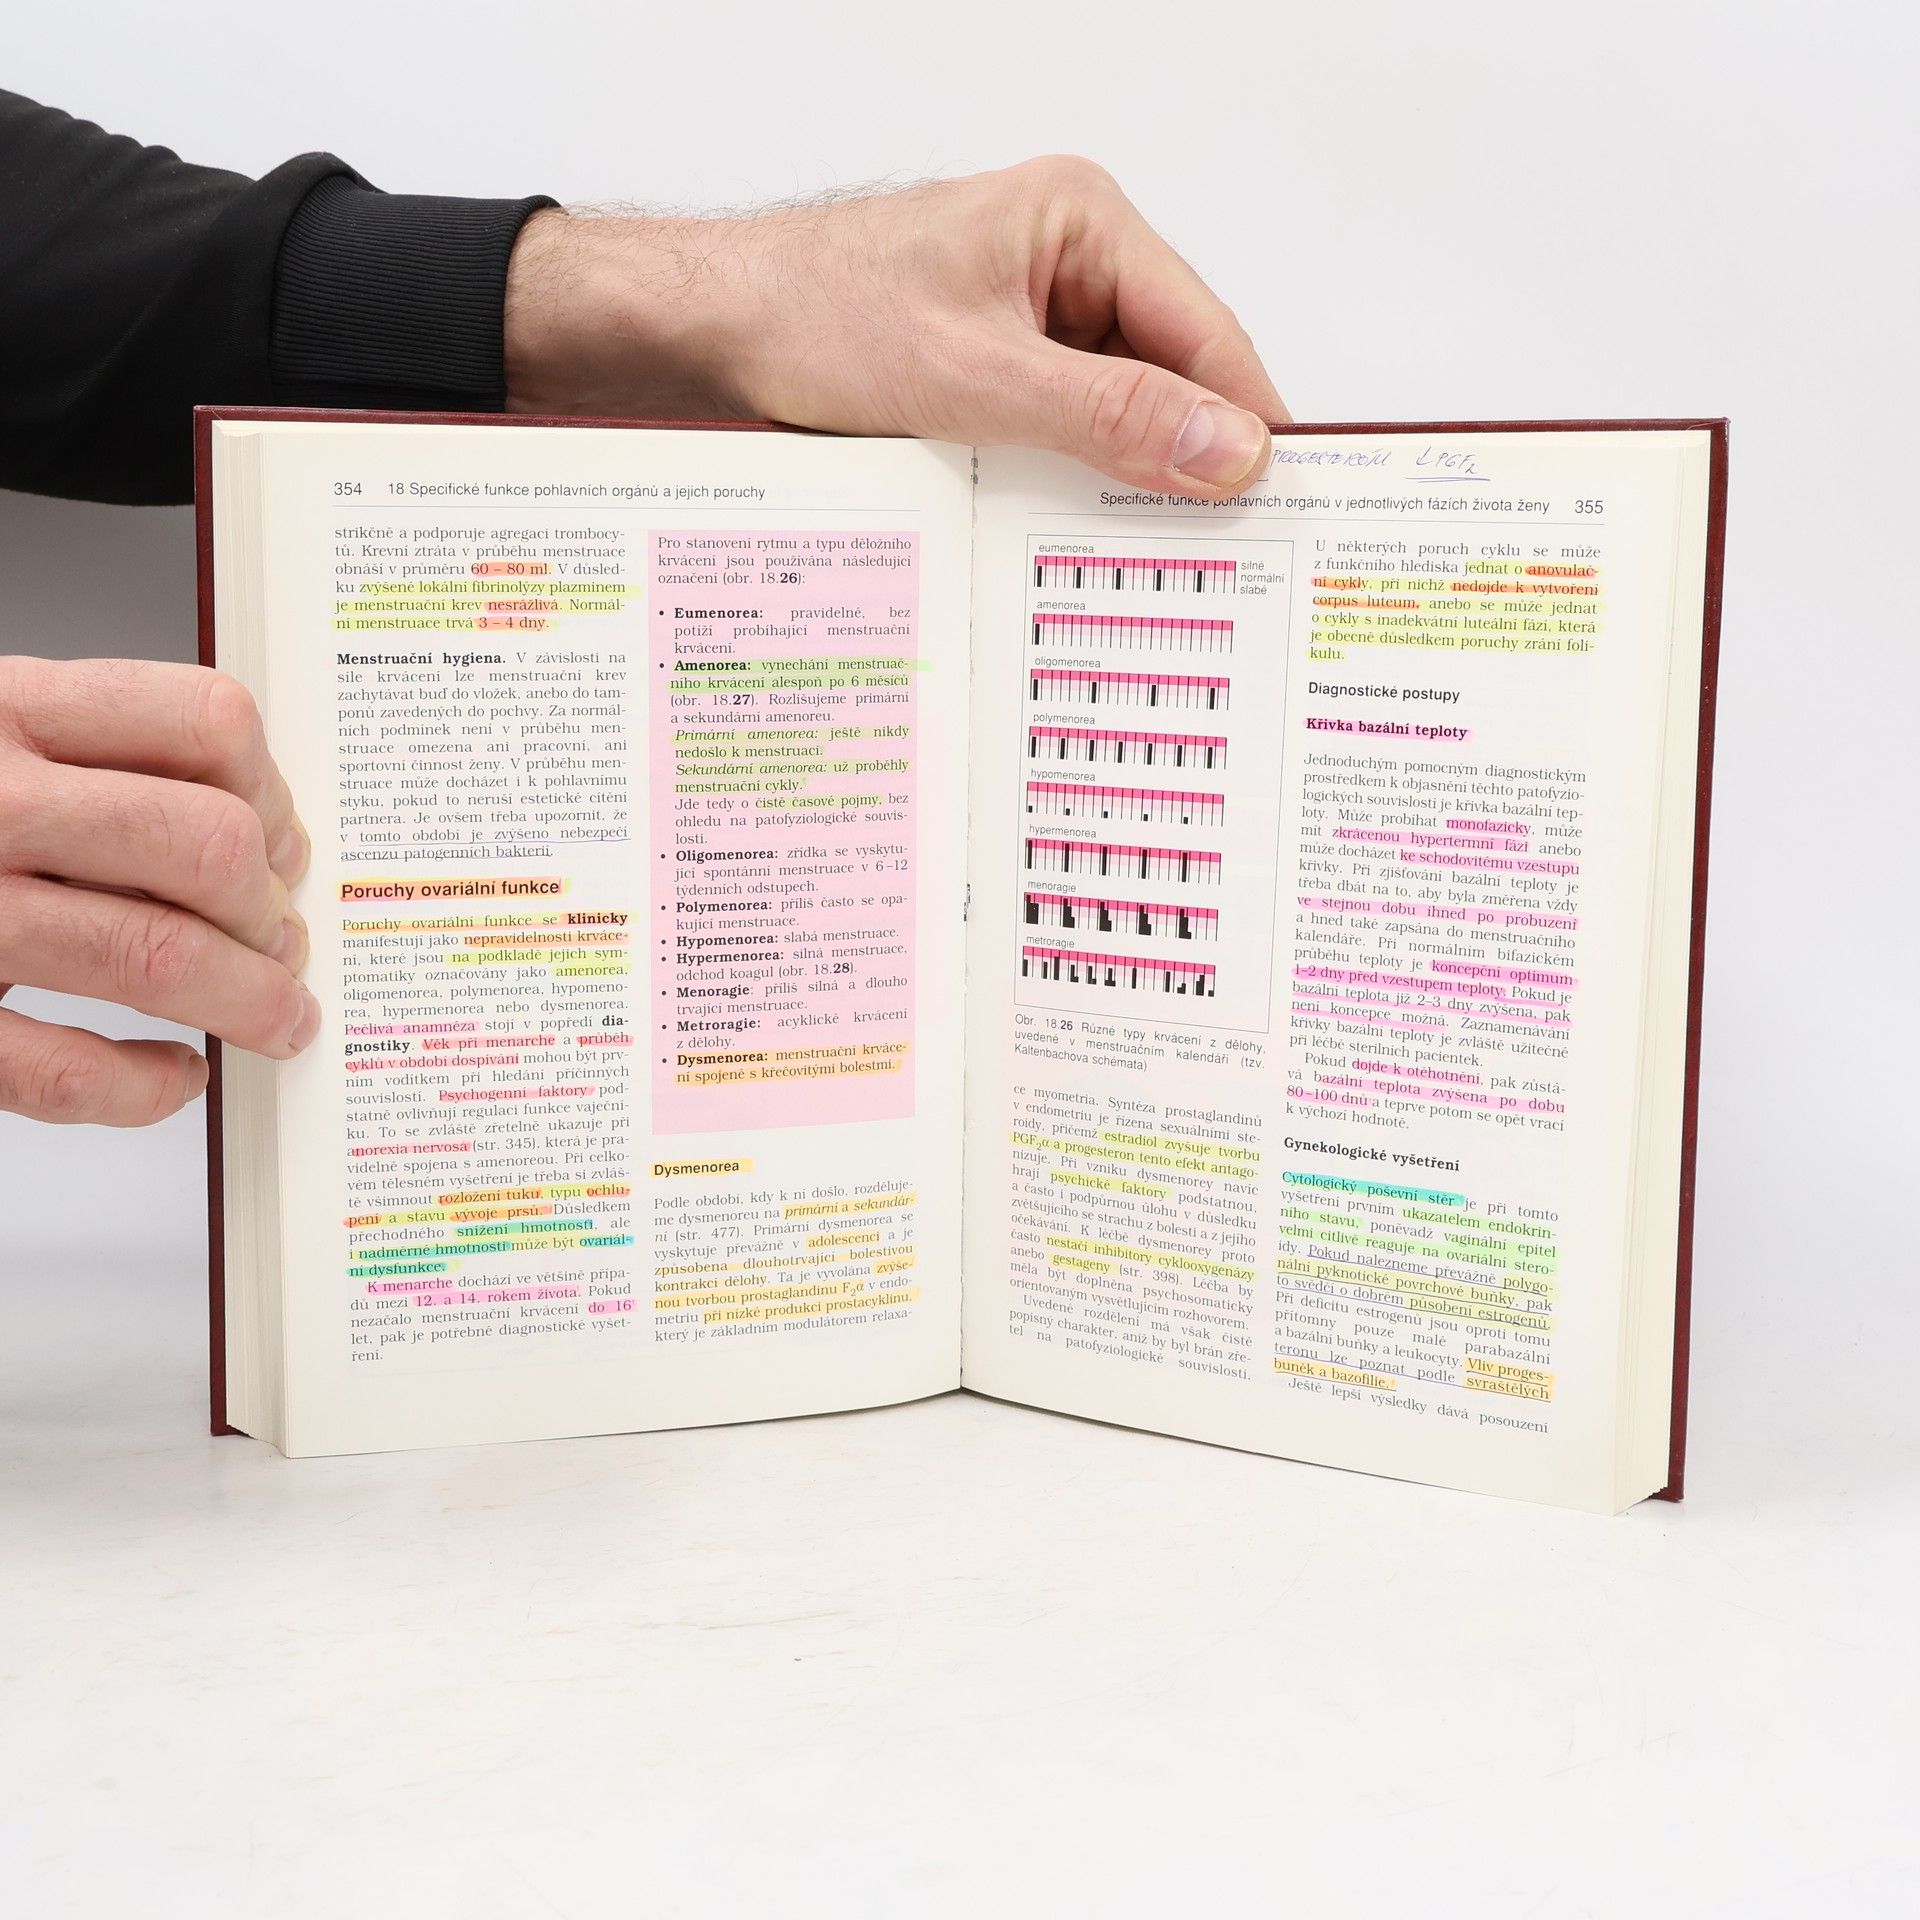 354 18 Specifické funkce pohlavních orgánů a jejich poruchy
strikčně a podporuje agregaci trombocy-
tů. Krevní ztráta v průběhu menstruace
obnáší v průměru 60 – 80 ml. V důsled-
ku zvýšené lokální fibrinolýzy plazminem
je menstruační krev nesrážlivá. Normál-
ní menstruace trvá 3 – 4 dny.
Menstruační hygiena. V závislosti na
síle krvácení lze menstruační krev
zachytávat buď do vložek, anebo do tam-
ponů zavedených do pochvy. Za normál-
ních podmínek není v průběhu men-
struace omezena ani pracovní, ani
sportovní činnost ženy. V průběhu men-
struace může docházet i k pohlavnímu
styku, pokud to neruší estetické cítění
partnera. Je ovšem třeba upozornit, že
v tomto období je zvýšeno nebezpečí
ascenzu patogenních bakterií.
Poruchy ovariální funkce
Poruchy ovariální funkce se klinicky
manifestují jako nepravidelnosti krváce-
ní, které jsou na podkladě jejich sym-
ptomatiky označovány jako amenorea,
oligomenorea, polymenorea, hypomeno-
rea, hypermenorea nebo dysmenorea.
Pečlivá anamnéza stojí v popředí dia-
gnostiky. Věk při menarche a průběh
cyklů v období dospívání mohou být prv-
ním vodítkem při hledání příčinných
souvislostí. Psychogenní faktory pod-
statně ovlivňují regulaci funkce vaječní-
ku. To se zvláště zřetelně ukazuje při
anorexia nervosa (str. 345), která je pra-
videlně spojena s amenoreou. Při celko-
vém tělesném vyšetření je třeba si zvláš-
tě všimnout rozložení tuku, typu ochlu-
pení a stavu vývoje prsů. Důsledkem
přechodného snížení hmotnosti, ale
i nadměrné hmotnosti může být ovariál-
ní dysfunkce.
K menarche dochází ve většině přípa-
dů mezi 12. a 14. rokem života. Pokud
nezačalo menstruační krvácení do 16
let, pak je potřebné diagnostické vyšet-
ření.
Pro stanovení rytmu a typu děložního
krvácení jsou používána následující
označení (obr. 18.26):
• Eumenorea: pravidelné, bez
potíží probíhající menstruační
krvácení.
• Amenorea: vynechání menstruač-
ního krvácení alespoň po 6 měsíců
(obr. 18.27). Rozlišujeme primární
a sekundární amenoreu.
Primární amenorea: ještě nikdy
nedošlo k menstruaci.
Sekundární amenorea: už proběhly
menstruační cykly.
Jde tedy o čistě časové pojmy, bez
ohledu na patofyziologické souvis-
losti.
• Oligomenorea: zřídka se vyskytu-
jící spontánní menstruace v 6–12
týdenních odstupech.
• Polymenorea: příliš často se opa-
kující menstruace.
• Hypomenorea: slabá menstruace.
• Hypermenorea: silná menstruace,
odchod koagul (obr. 18.28).
• Menoragie: příliš silná a dlouho
trvající menstruace.
• Metroragie: acyklické krvácení
z dělohy.
• Dysmenorea: menstruační krváce-
ní spojené s křečovitými bolestmi.
Dysmenorea
Podle období, kdy k ní došlo, rozděluje-
me dysmenoreu na primární a sekundár-
ní (str. 477). Primární dysmenorea se
vyskytuje převážně v adolescenci a je
způsobena dlouhotrvající bolestivou
kontrakcí dělohy. Ta je vyvolána zvýše-
nou tvorbou prostaglandinu F2α v endo-
metriu při nízké produkci prostacyklinu,
který je základním modulátorem relaxa-
PROGESTERON ↓PGF2
Specifické funkce pohlavních orgánů v jednotlivých fázích života ženy 355
eumenorea
silné
normální
slabé
amenorea
oligomenorea
polymenorea
hypomenorea
hypermenorea
menoragie
metroragie
Obr. 18.26 Různé typy krvácení z dělohy,
uvedené v menstruačním kalendáři (tzv.
Kaltenbachova schémata)
ce myometria. Syntéza prostaglandinů
v endometriu je řízena sexuálními ste-
roidy, přičemž estradiol zvyšuje tvorbu
PGF2α a progesteron tento efekt antago-
nizuje. Při vzniku dysmenorey navíc
hrají psychické faktory podstatnou,
a často i podpůrnou úlohu v důsledku
zvětšujícího se strachu z bolestí a z jejího
očekávání. K léčbě dysmenorey proto
často nestačí inhibitory cyklooxygenázy
anebo gestageny (str. 398). Léčba by
měla být doplněna psychosomaticky
orientovaným vysvětlujícím rozhovorem.
Uvedené rozdělení má však čistě
popisný charakter, aniž by byl brán zře-
tel na patofyziologické souvislosti.
U některých poruch cyklu se může
z funkčního hlediska jednat o anovulač-
ní cykly, při nichž nedojde k vytvoření
corpus luteum, anebo se může jednat
o cykly s inadekvátní luteální fází, která
je obecně důsledkem poruchy zrání foli-
kulu.
Diagnostické postupy
Křivka bazální teploty
Jednoduchým pomocným diagnostickým
prostředkem k objasnění těchto patofyzio-
logických souvislostí je křivka bazální tep-
loty. Může probíhat monofazicky, může
mít zkrácenou hypertermní fázi anebo
může docházet ke schodovitému vzestupu
křivky. Při zjišťování bazální teploty je
třeba dbát na to, aby byla změřena vždy
ve stejnou dobu ihned po probuzení
a hned také zapsána do menstruačního
kalendáře. Při normálním bifazickém
průběhu teploty je koncepční optimum
1–2 dny před vzestupem teploty. Pokud je
bazální teplota již 2–3 dny zvýšena, pak
není koncepce možná. Zaznamenávání
křivky bazální teploty je zvláště užitečné
při léčbě sterilních pacientek.
Pokud dojde k otěhotnění, pak zůstá-
vá bazální teplota zvýšena po dobu
80–100 dnů a teprve potom se opět vrací
k výchozí hodnotě.
Gynekologické vyšetření
Cytologický poševní stěr je při tomto
vyšetření prvním ukazatelem endokrin-
ního stavu, poněvadž vaginální epitel
velmi citlivě reaguje na ovariální stero-
idy. Pokud nalezneme převážně polygo-
nální pyknotické povrchové buňky, pak
to svědčí o dobrém působení estrogenů.
Při deficitu estrogenů jsou oproti tomu
přítomny pouze malé parabazální
a bazální buňky a leukocyty. Vliv proges-
teronu lze poznat podle svraštělých
buněk a bazofilie.
Ještě lepší výsledky dává posouzení